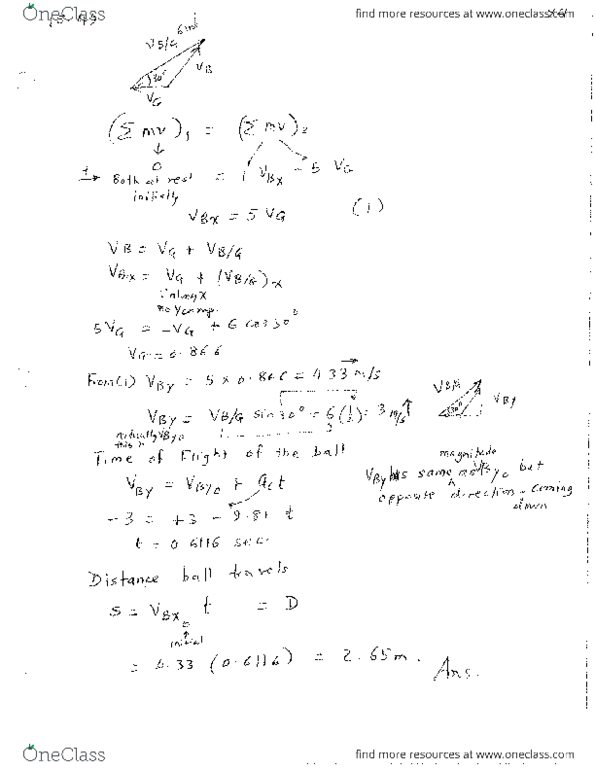 OneClass
find more resources at www.oneclass.com
V B/G 6m/s
V_B
30°
V_G
(Σ mv)₁ = (Σ mv)₂
0
Both at rest = 1 V_Bx - 5 V_G
initially
V_Bx = 5 V_G (1)
V_B = V_G + V_B/G
V_Bx = V_G + (V_B/G)_x
no y comp.
5 V_G = -V_G + 6 cos 30°
V_G = 0.866
From (1) V_By = 5 x 0.866 = 4.33 m/s
V_By = V_B/G sin 30° = 6 (1/2) = 3 m/s ↑
V B/G
30°
V_By
Time of Flight of the ball
V_By = V_By₀ + a_c t
-3 = +3 - 9.81 t
t = 0.6116 sec.
magnitude
V_By has same but
opposite direction - coming
down
Distance ball travels
S = V_Bx₀ t = D
initial
= 4.33 (0.6116) = 2.65 m. Ans.
OneClass
find more resources at www.oneclass.com